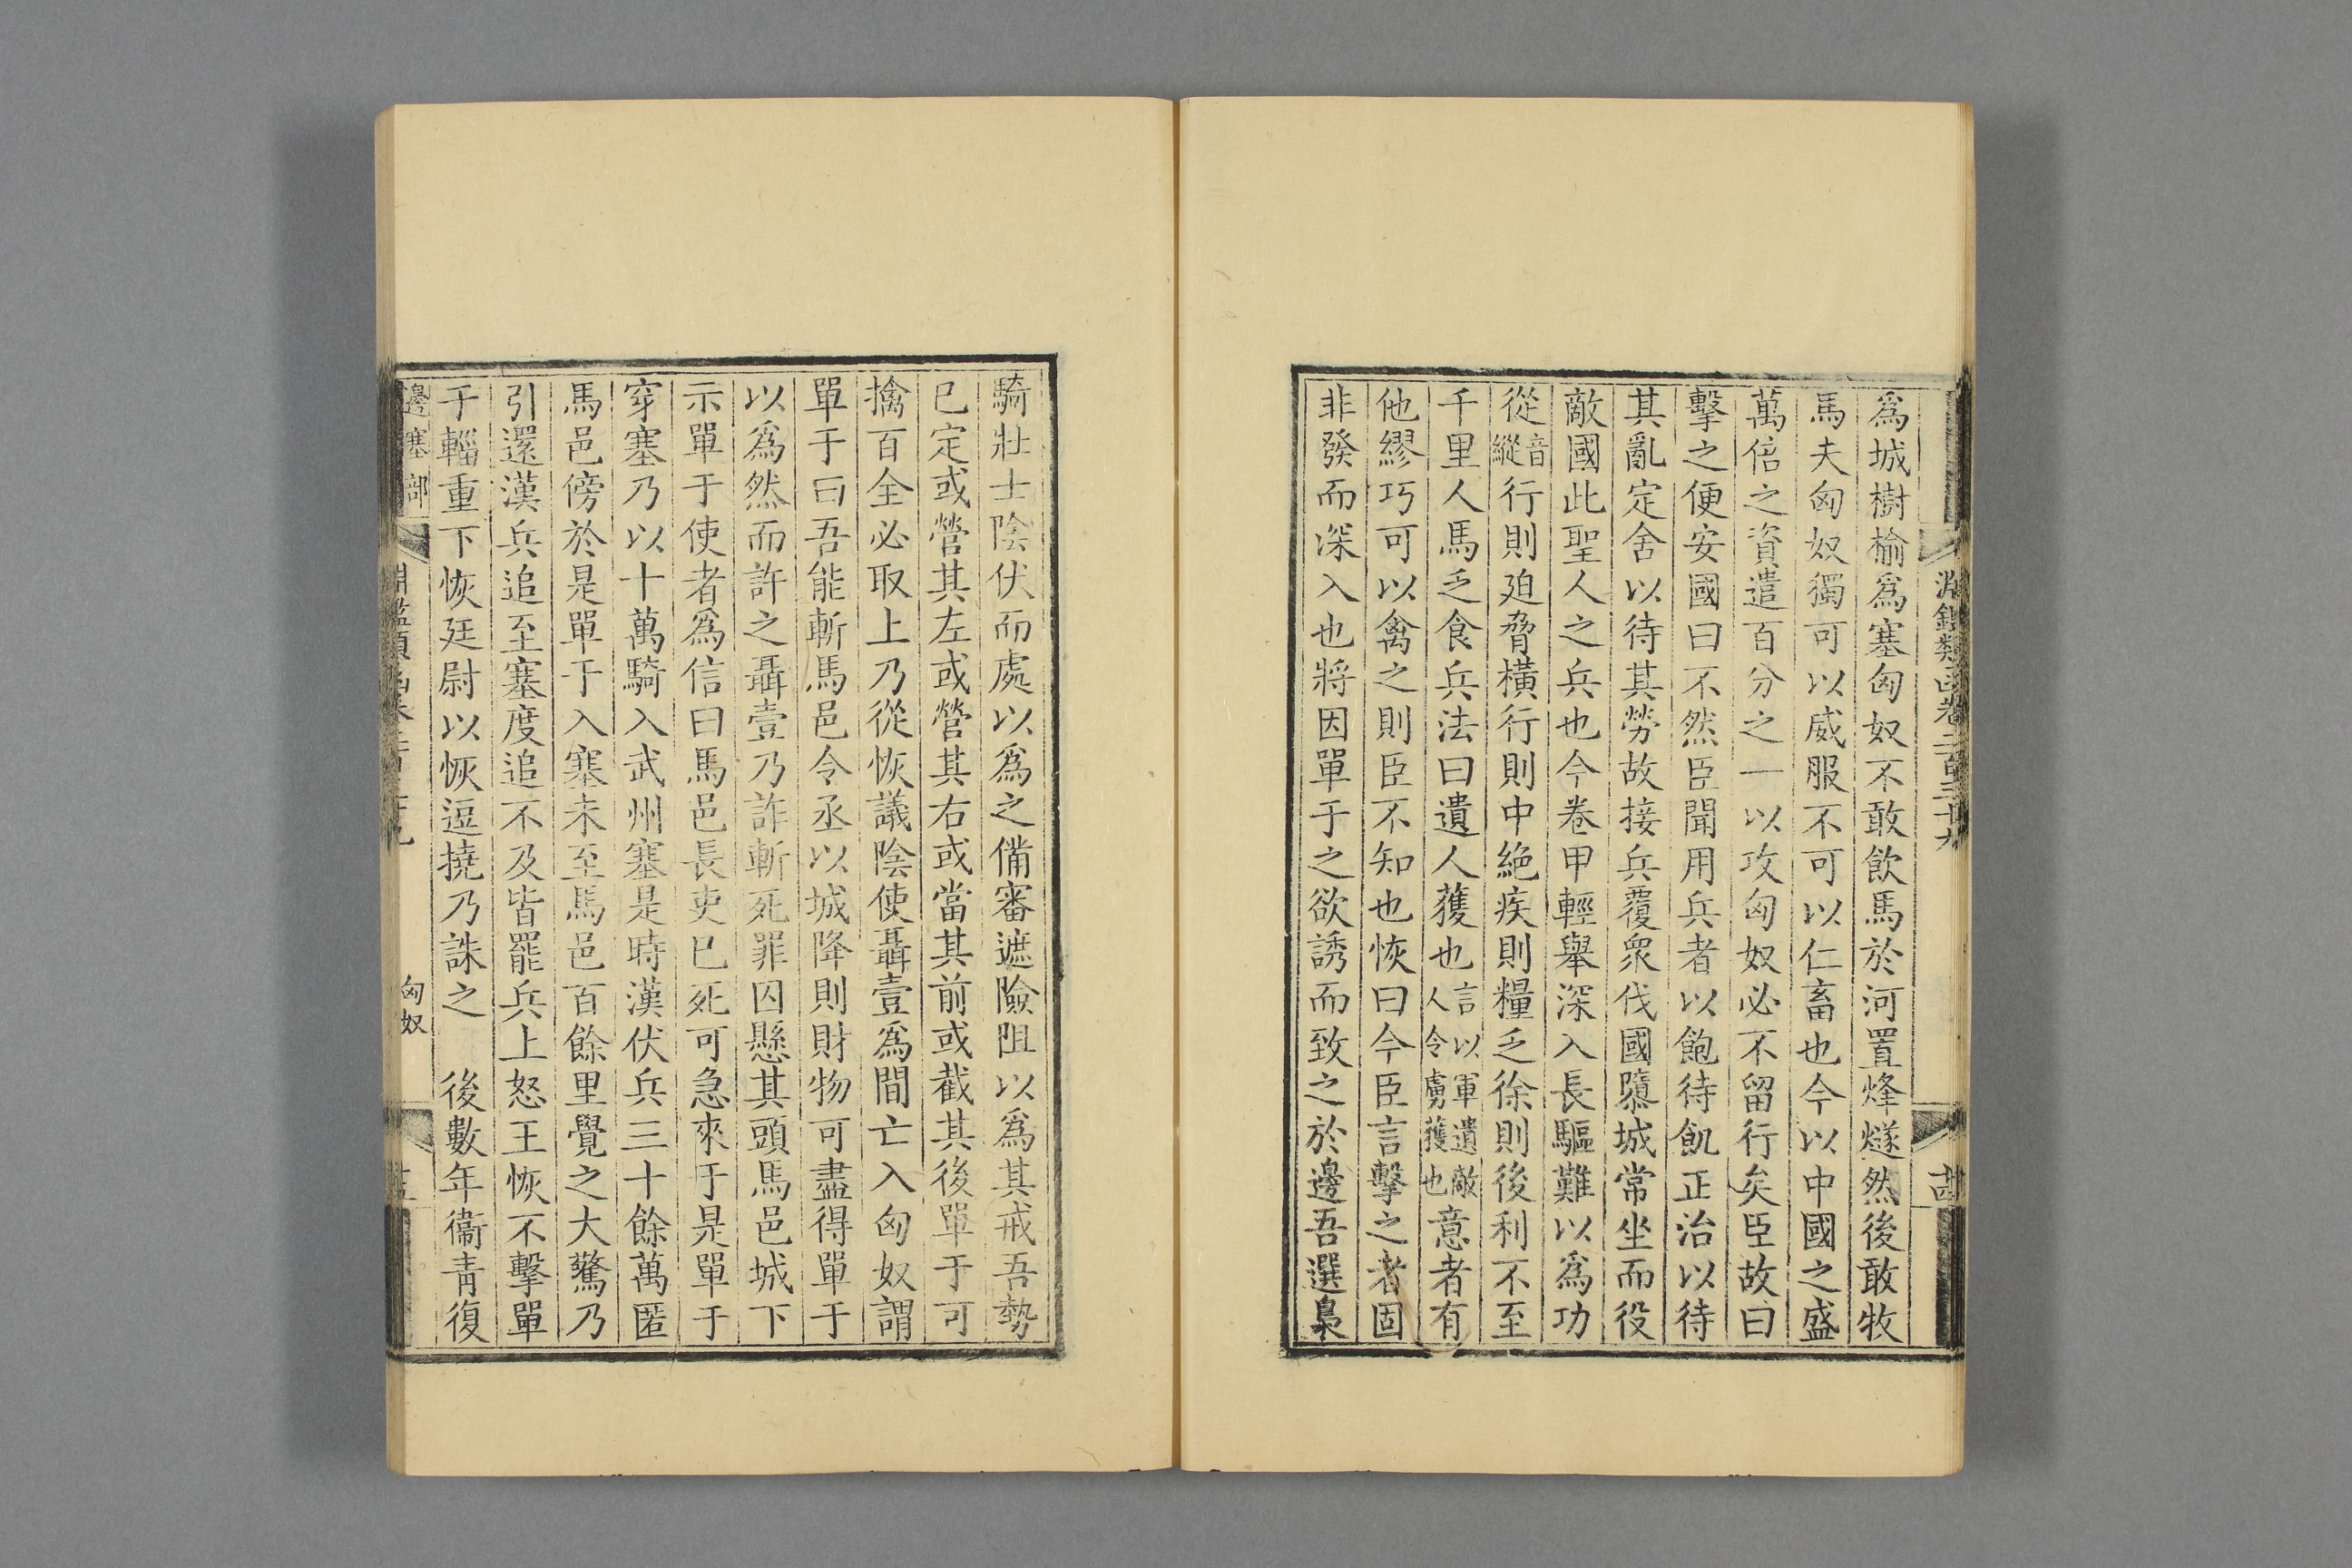 淵鑑類函卷二百三十九
爲城樹榆爲塞匈奴不敢飲馬於河置烽燧然後敢牧
馬夫匈奴獨可以威服不可以仁畜也今以中國之盛
萬倍之資遣百分之一以攻匈奴必不留行矣臣故曰
擊之便安國曰不然臣聞用兵者以飽待飢正治以待
其亂定舍以待其勞故接兵覆衆伐國隳城常坐而役
敵國此聖人之兵也今卷甲輕舉深入長驅難以爲功
從音縱行則廹脅橫行則中絶疾則糧乏徐則後利不至
千里人馬乏食兵法曰遺人獲也言以軍遺敵人令虜獲也意者有
他繆巧可以禽之則臣不知也恢曰今臣言擊之者固
非發而深入也將因單于之欲誘而致之於邊吾選梟
騎壯士陰伏而處以爲之備審遮險阻以爲其戒吾勢
已定或營其左或營其右或當其前或截其後單于可
擒百全必取上乃從恢議陰使聶壹爲間亡入匈奴謂
單于曰吾能斬馬邑令丞以城降則財物可盡得單于
以爲然而許之聶壹乃詐斬死罪囚懸其頭馬邑城下
示單于使者爲信曰馬邑長吏已死可急來于是單于
穿塞乃以十萬騎入武州塞是時漢伏兵三十餘萬匿
馬邑傍於是單于入塞未至馬邑百餘里覺之大驚乃
引還漢兵追至塞度追不及皆罷兵上怒王恢不擊單
于輜重下恢廷尉以恢逗撓乃誅之　後數年衞青復
邊塞部　匈奴